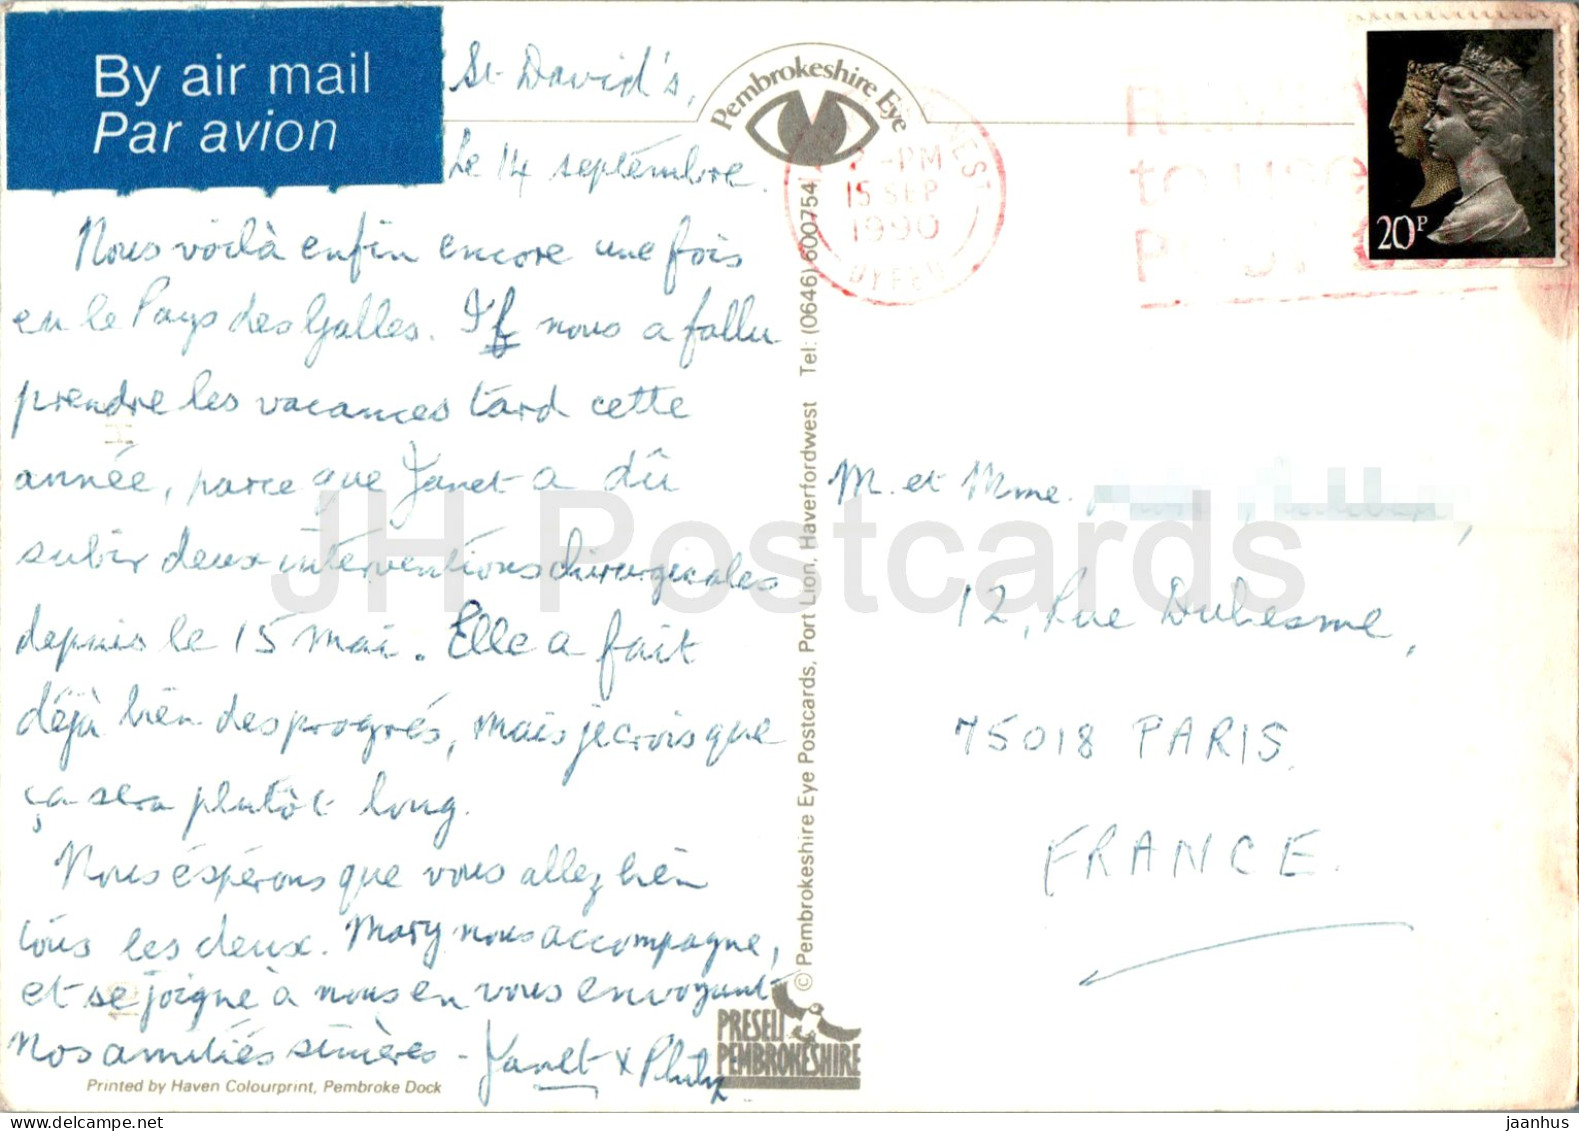 By air mail
Par avion
St David's,
Le 14 septembre.
Nous voilà enfin encore une fois
en le Pays des Galles. Il nous a fallu
prendre les vacances tard cette
année, parce que Janet a dû
subir deux interventions chirurgicales
depuis le 15 mai. Elle a fait
déjà bien des progrés, mais je crois que
ça sera plutôt long.
Nous éspérons que vous allez bien
tous les deux. Mary nous accompagne,
et se joigne à nous en vous envoyant
nos amitiés sincères - Janet & Philip
Printed by Haven Colourprint, Pembroke Dock
Pembrokeshire Eye
© Pembrokeshire Eye Postcards, Port Lion, Haverfordwest Tel: (0646) 600754
PRESELI
PEMBROKESHIRE
2 -PM
15 SEP
1990
DYFED
to use
20P
M. et Mme.
12, Rue Duhesme,
75018 PARIS.
FRANCE.
JH Postcards
jaanhus
delcampe.net